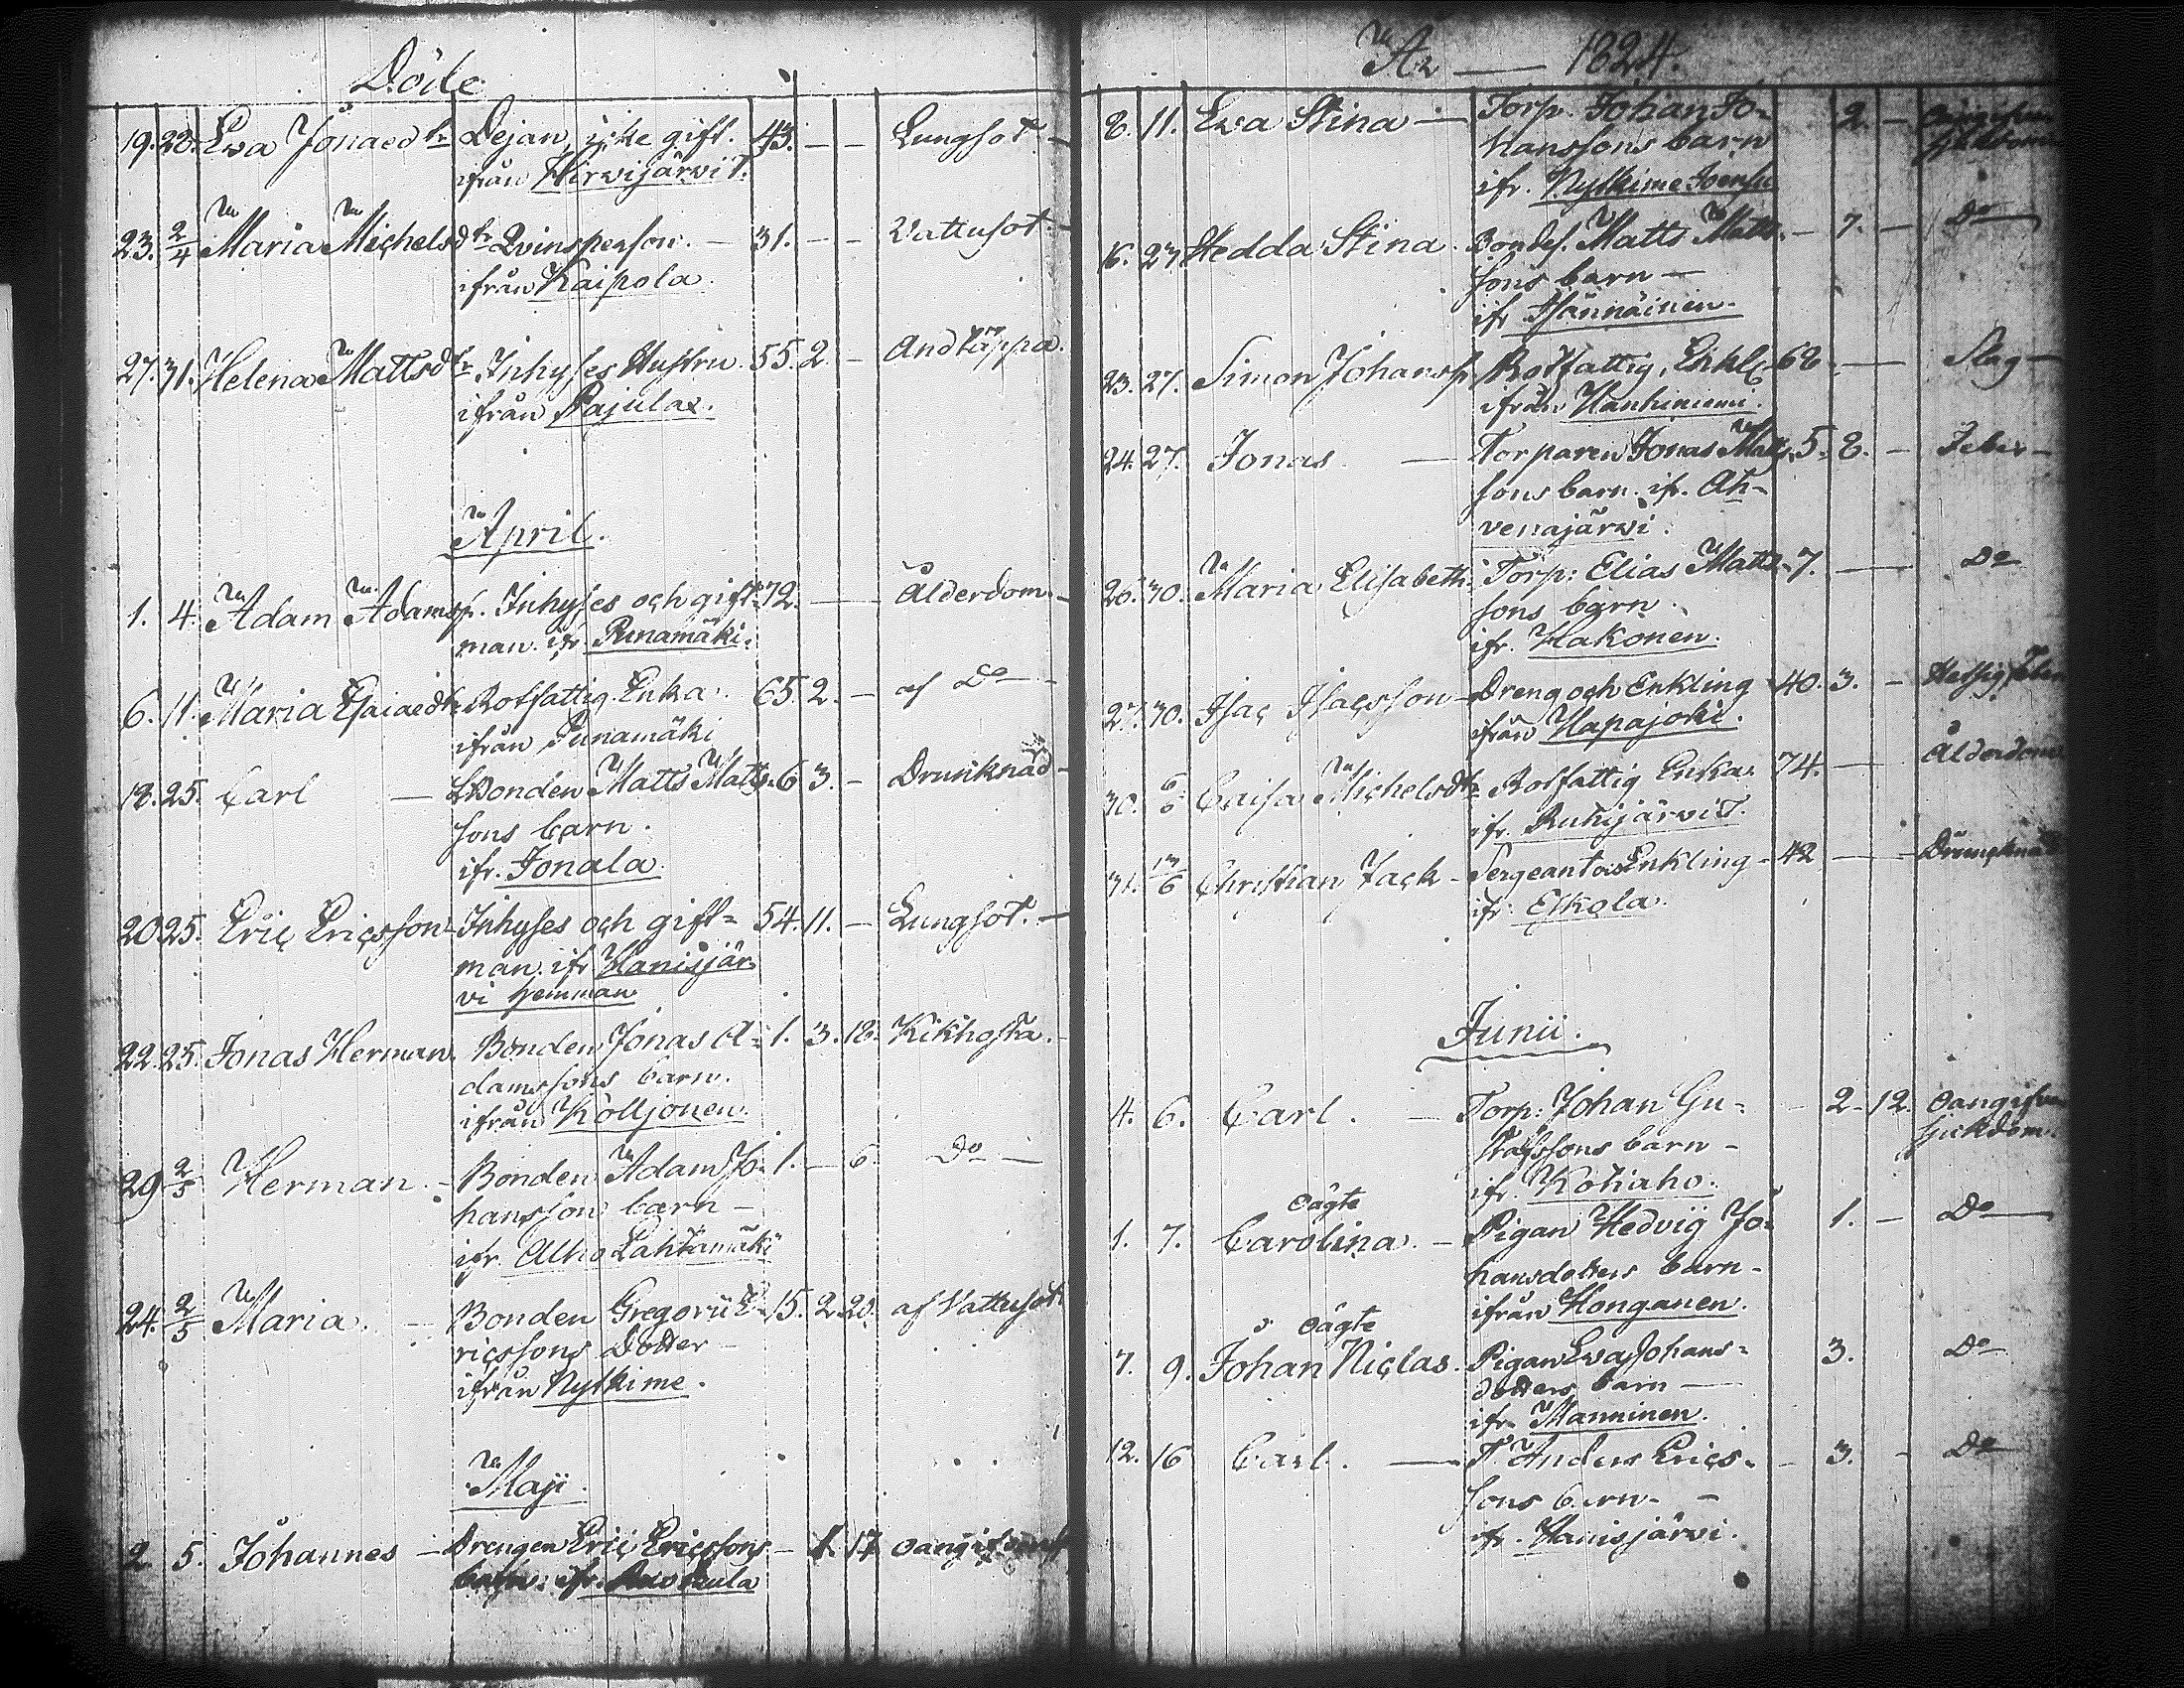 Döde
19. 28. Eva Jonaedr Dejan, icke gift. 43. — — Lungsot. —
ifrån Hirvijärvi T.
23. 2/4 Maria Michelsdr Qvinsperson. — 31. — — Vattusot. —
ifrån Kaipola.
27. 31. Helena Mattsdr Inhyses Hustru. 55. 2. — Andtäppa.
ifrån Pajulax.
April.
1. 4. Adam Adamsss. Inhyses och gift= 72. — — Ålderdom. —
man. ifr. Punamäki.
6. 11. Maria Esaiaedr Rotfattig Enka. 65. 2. — af Do —
ifrån Punamäki
18. 25. Carl — Bonden Matts Matts= 6. 3. — Drunknad —
sons barn.
ifr. Jonala.
20. 25. Eric Ericsson — Inhyses och gift= 54. 11. — Lungsot. —
man. ifr. Hanisjär-
vi hemman
22. 25. Jonas Herman. Bonden Jonas A= 1. 3. 18. Kikhosta. —
damssons barn.
ifrån Kolljonen.
29 2/5 Herman. — Bonden Adam Jo= 1. — 6. Do —
hanssons barn —
ifr. Alho Lahtamäki
24. 2/5 Maria. — Bonden Gregorii E= 15. 2. 20. af Vattusot
ricssons Dotter —
ifrån Nylkime.
Maji.
2. 5. Johannes — Drengen Eric Ericssons — 1. 17. oangifven
barn. ifr. Ruokula
Ao — 1824.
8. 11. Eva Stina — Torp. Johan Jo= 2. — Oangifven
hanssons barn sjukdom
ifr. Nylkime Joensu
16. 23. Hedda Stina. Bondes. Matts Matts= — 7. — Do —
sons barn —
ifr. Hännäinen.
23. 27. Simon Johanss. Rotfattig, Enkl. 68. — Slag —
ifrån Hankiniemi.
24. 27. Jonas. — Torparen Jonas Matts= 5. 8. — Feber —
sons barn. ifr. Ah-
venajärvi.
26. 30. Maria Elisabeth. Torp: Elias Matts= 7. — Do
sons barn.
ifr. Hakonen.
27. 30. Isac Isacsson — Dreng och Enkling 40. 3. — Hetsig feber
ifrån Hapajoki.
30. 6/6 Caisa Michelsdr Rotfattig Enka. 74. — Ålderdom
ifr. Ruhijärvi T.
31. 13/6 Christian Jack — Sergeant och Enkling — 42 — — Drunknad
ifr. Eskola.
Junii.
4. 6. Carl. — Torp: Johan Gu= — 2. 12. oangifven
stafssons barn — sjukdom.
ifr. Kotiaho.
oägte
1. 7. Carolina. — Pigan Hedvig Jo= 1. — Do —
hansdotters barn —
ifrån Honganen.
oägte
7. 9. Johan Niclas. Pigan Eva Johans= 3. Do
dotters barn —
ifr. Manninen.
12. 16 Carl. — T. Anders Erics= — 3. — Do
sons barn — —
ifr. Hanisjärvi.